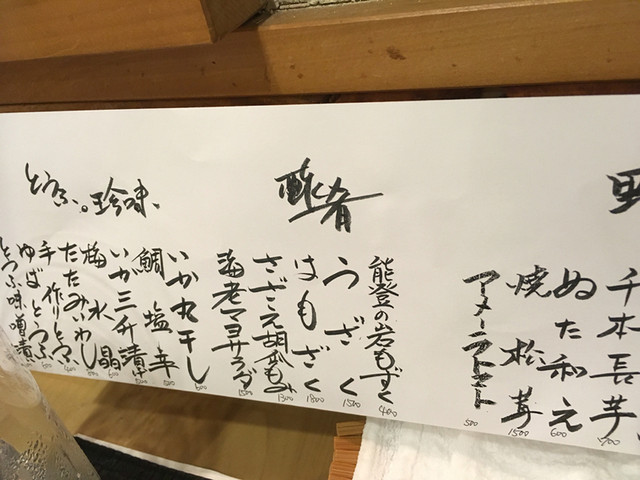 千本長芋
700
ぬた和え
600
焼松茸
1500
アメーラトマト
500
酢肴
能登の岩もずく
400
うざく
1500
はもざく
1800
さざえ胡瓜もみ
1300
海老マヨサラダ
1500
とうふ。珍味、
いか丸干し
600
鯛塩辛
500
いか三升漬け
500
梅水晶
600
たたみいわし
500
手作りとうふ
400
ゆばとうふ
500
とうふ味噌漬